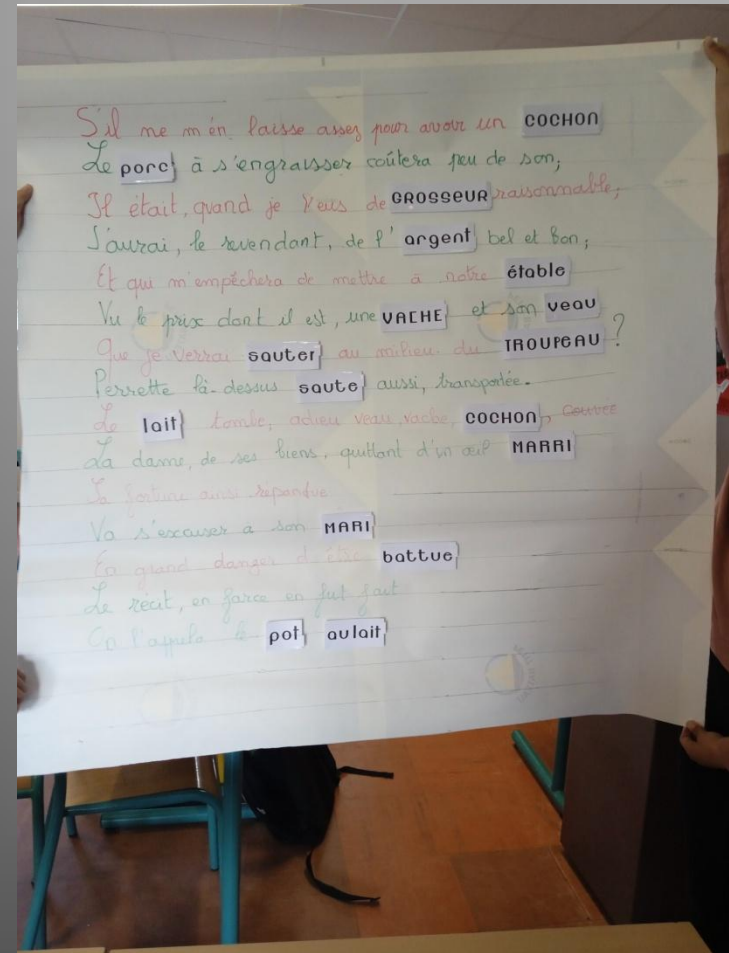 S'il me m'en laisse assez pour avoir un COCHON
Le porc à s'engraisser coûtera peu de son;
Il était, quand je l'eus de GROSSEUR raisonnable;
J'aurai, le revendant, de l'argent bel et bon;
Et qui m'empêchera de mettre à notre étable
Vu le prix dont il est, une VACHE et son veau
Que je verrai sauter au milieu du TROUPEAU ?
Perrette là-dessus saute aussi, transportée.
Le lait tombe, adieu veau, vache, COCHON, Couvée
La dame, de ses biens, quittant d'un œil MARRI
Sa fortune ainsi répandue
Va s'excuser a son MARI
En grand danger d'être battue
Le récit, en farce en fut fait
On l'appela le pot au lait